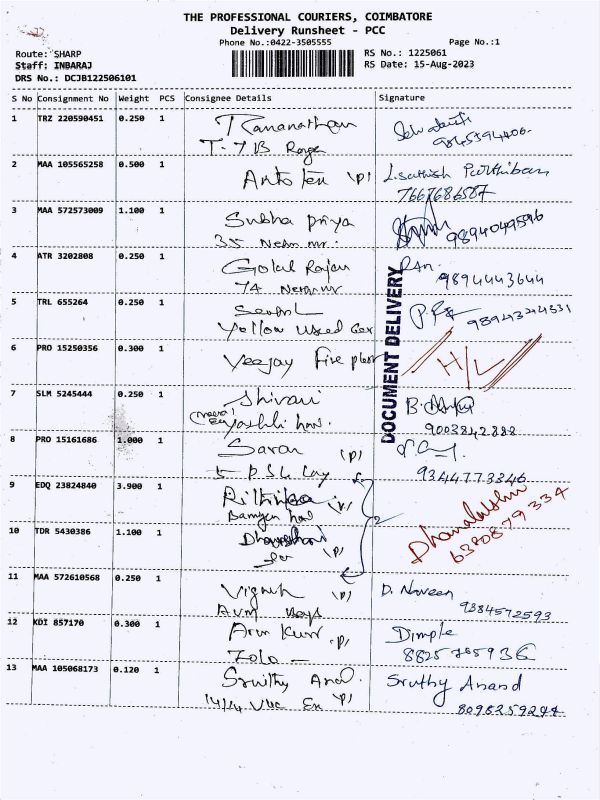 THE PROFESSIONAL COURIERS, COIMBATORE
Delivery Runsheet - PCC
Phone No.:0422-3505555 Page No.:1
Route: SHARP RS No.: 1225061
Staff: INBARAJ RS Date: 15-Aug-2023
DRS No.: DCJB122506101
S No Consignment No Weight PCS Consignee Details Signature
1 TRZ 220590451 0.250 1 Rananathan
T-7 B
2 MAA 105565258 0.500 1 (P) L. Sathish Parthiban
7667686587
3 MAA 572573009 1.100 1 Subha priya 9894049596
35
4 ATR 3202808 0.250 1 Gokul Rajan
74 9894443644
5 TRL 655264 0.250 1
Yellow Used Car 9894324331
6 PRO 15250356 0.300 1 Veejay Fire H/L
7 SLM 5245444 0.250 1 Shivani B.
9003842888
8 PRO 15161686 1.000 1 Saran (P)
9344773346
9 EDQ 23824840 3.900 1 Rithika Dhanalakshmi
6380879334
10 TDR 5430386 1.100 1
(P)
11 MAA 572610568 0.250 1 Vignesh (P) D. Naveen
9384572593
12 KDI 857170 0.300 1 Arun Kumr (P) Dimple
Zolo
13 MAA 105068173 0.120 1 Sruthy Anand Sruthy Anand
(P) 8098259244
DOCUMENT DELIVERY